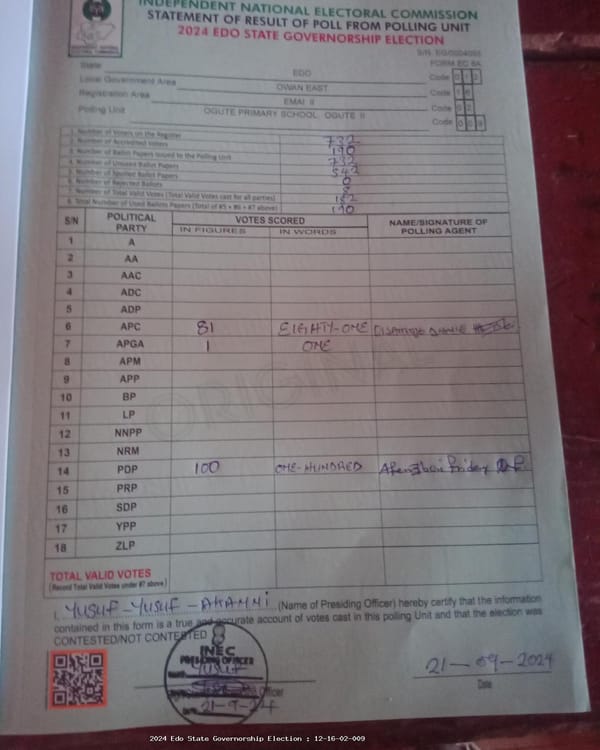 INDEPENDENT NATIONAL ELECTORAL COMMISSION
STATEMENT OF RESULT OF POLL FROM POLLING UNIT
2024 EDO STATE GOVERNORSHIP ELECTION
FORM EC 8A
State EDO Code 0 1 2
Local Government Area OWAN EAST Code 1 6
Registration Area EMAI II Code 0 2
Polling Unit OGUTE PRIMARY SCHOOL, OGUTE II Code 0 0 9
1. Number of Voters on the Register 732
2. Number of Accredited Voters 190
3. Number of Ballot Papers Issued to the Polling Unit 732
4. Number of Unused Ballot Papers 542
5. Number of Spoiled Ballot Papers 0
6. Number of Rejected Ballots 8
7. Number of Total Valid Votes (Total Valid Votes cast for all parties) 182
8. Total Number of Used Ballots Papers (Total of #5 + #6 + #7 above) 190
S/N POLITICAL PARTY VOTES SCORED NAME/SIGNATURE OF POLLING AGENT
IN FIGURES IN WORDS
1 A
2 AA
3 AAC
4 ADC
5 ADP
6 APC 81 EIGHTY-ONE
7 APGA 1 ONE
8 APM
9 APP
10 BP
11 LP
12 NNPP
13 NRM
14 PDP 100 ONE-HUNDRED
15 PRP
16 SDP
17 YPP
18 ZLP
ORIGINAL
TOTAL VALID VOTES
(Record Total Valid Votes under #7 above)
I, YUSUF-YUSUF-AKANNI (Name of Presiding Officer) hereby certify that the information
contained in this form is a true and accurate account of votes cast in this polling Unit and that the election was
CONTESTED/NOT CONTESTED
INEC
PRESIDING OFFICER
YUSUF
21-9-24
Officer
21-09-2024
Date
2024 Edo State Governorship Election : 12-16-02-009